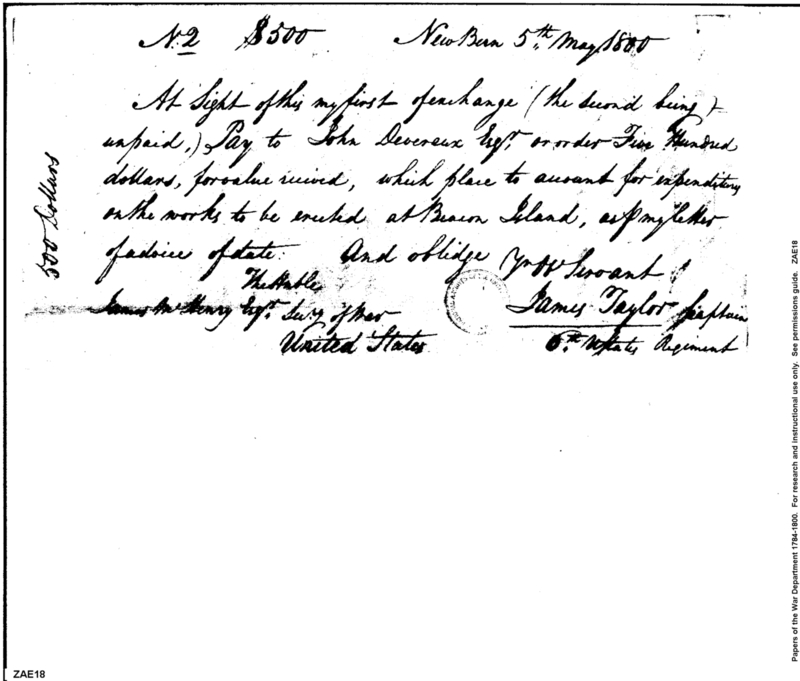 No. 2 $500 New Bern 5th. May 1800
At Sight of this my first of exchange (the second being
unpaid,) Pay to John Devereux Esqr. or order Five Hundred
dollars, for value recived, which place to account for expenditures
on the works to be erected at Beacon Island, as P my letter
of advice of date. And oblidge Yr Ob Servant
The Honble
James McHenry Esqr. Secy of War James Taylor Captain
United States 6th. UStates Regiment
500 Dollars
Papers of the War Department 1784-1800. For research and instructional use only. See permissions guide. ZAE18
ZAE18